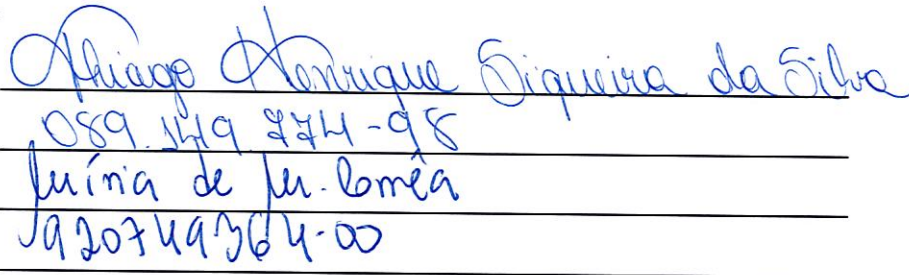 Thiago Henrique Siqueira da Silva
089.149.774-98
de Corrêa
920749364-00